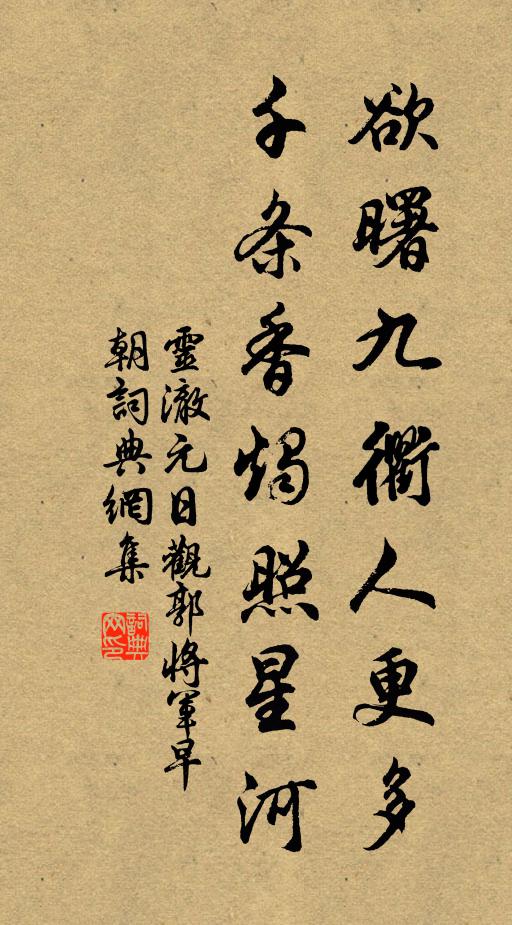 欲曙九衢人更多
千条香烛照星河
靈澈元日觀郭將軍早
朝詞典網集
詞典網印